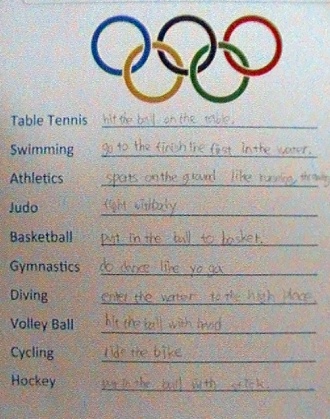 Table Tennis hit the ball on the table.
Swimming go to the finish the first in the water.
Athletics sports on the ground like running, throwing
Judo fight with body
Basketball put in the ball to basket.
Gymnastics do dance like yoga
Diving enter the water to the high place.
Volley Ball hit the ball with hand
Cycling ride the bike
Hockey put in the ball with stick.